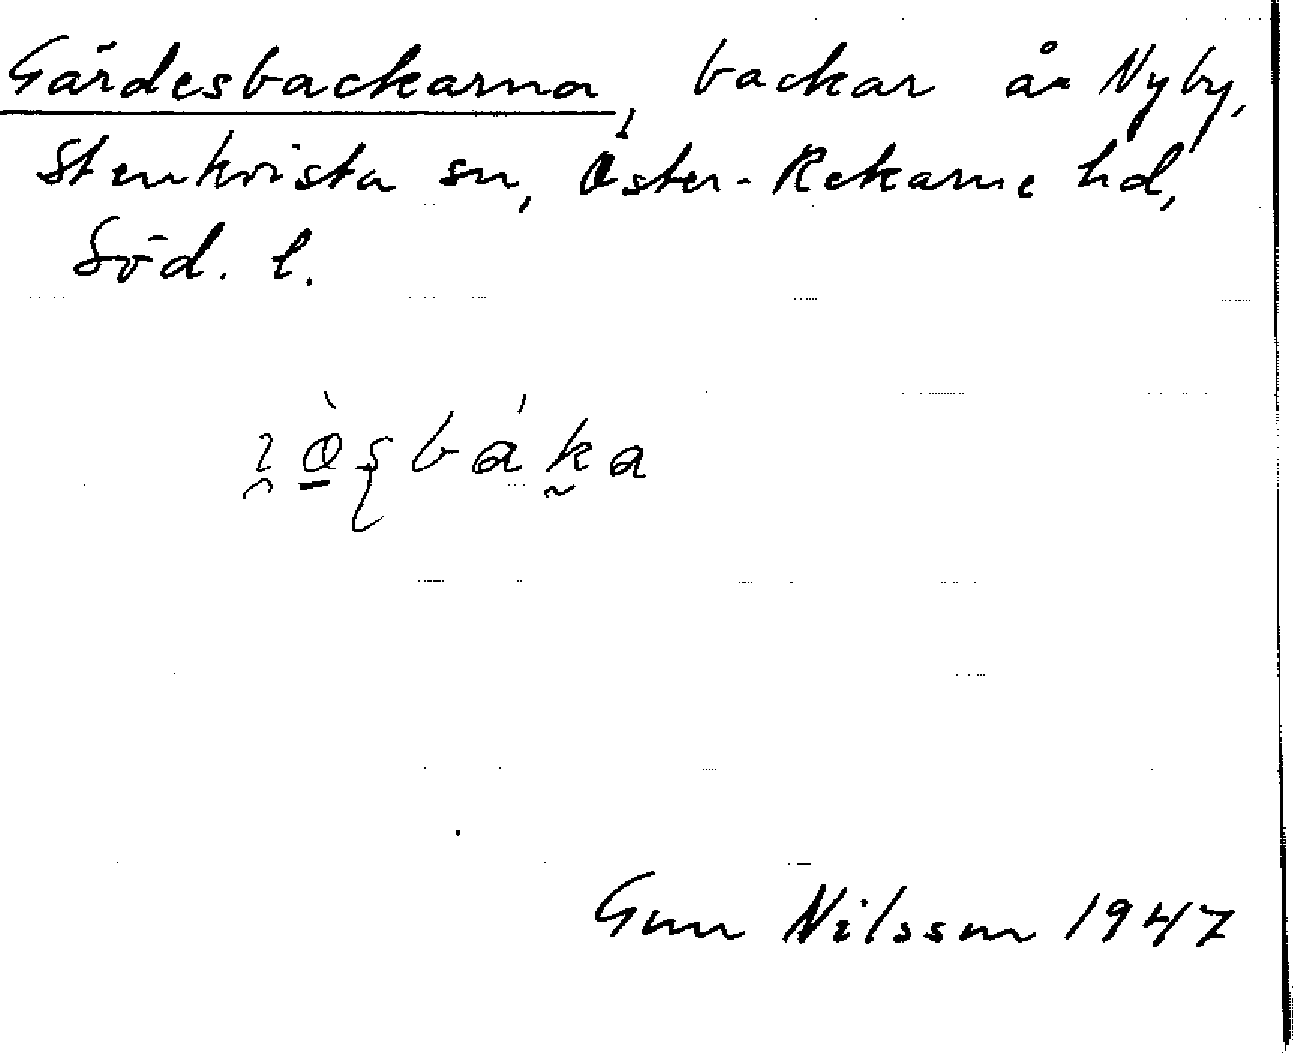 Gärdesbackarna, backar å Nyby,
Stenkvista sn, Öster-Rekarne hd,
Söd. l.
Gun Nilsson 1947